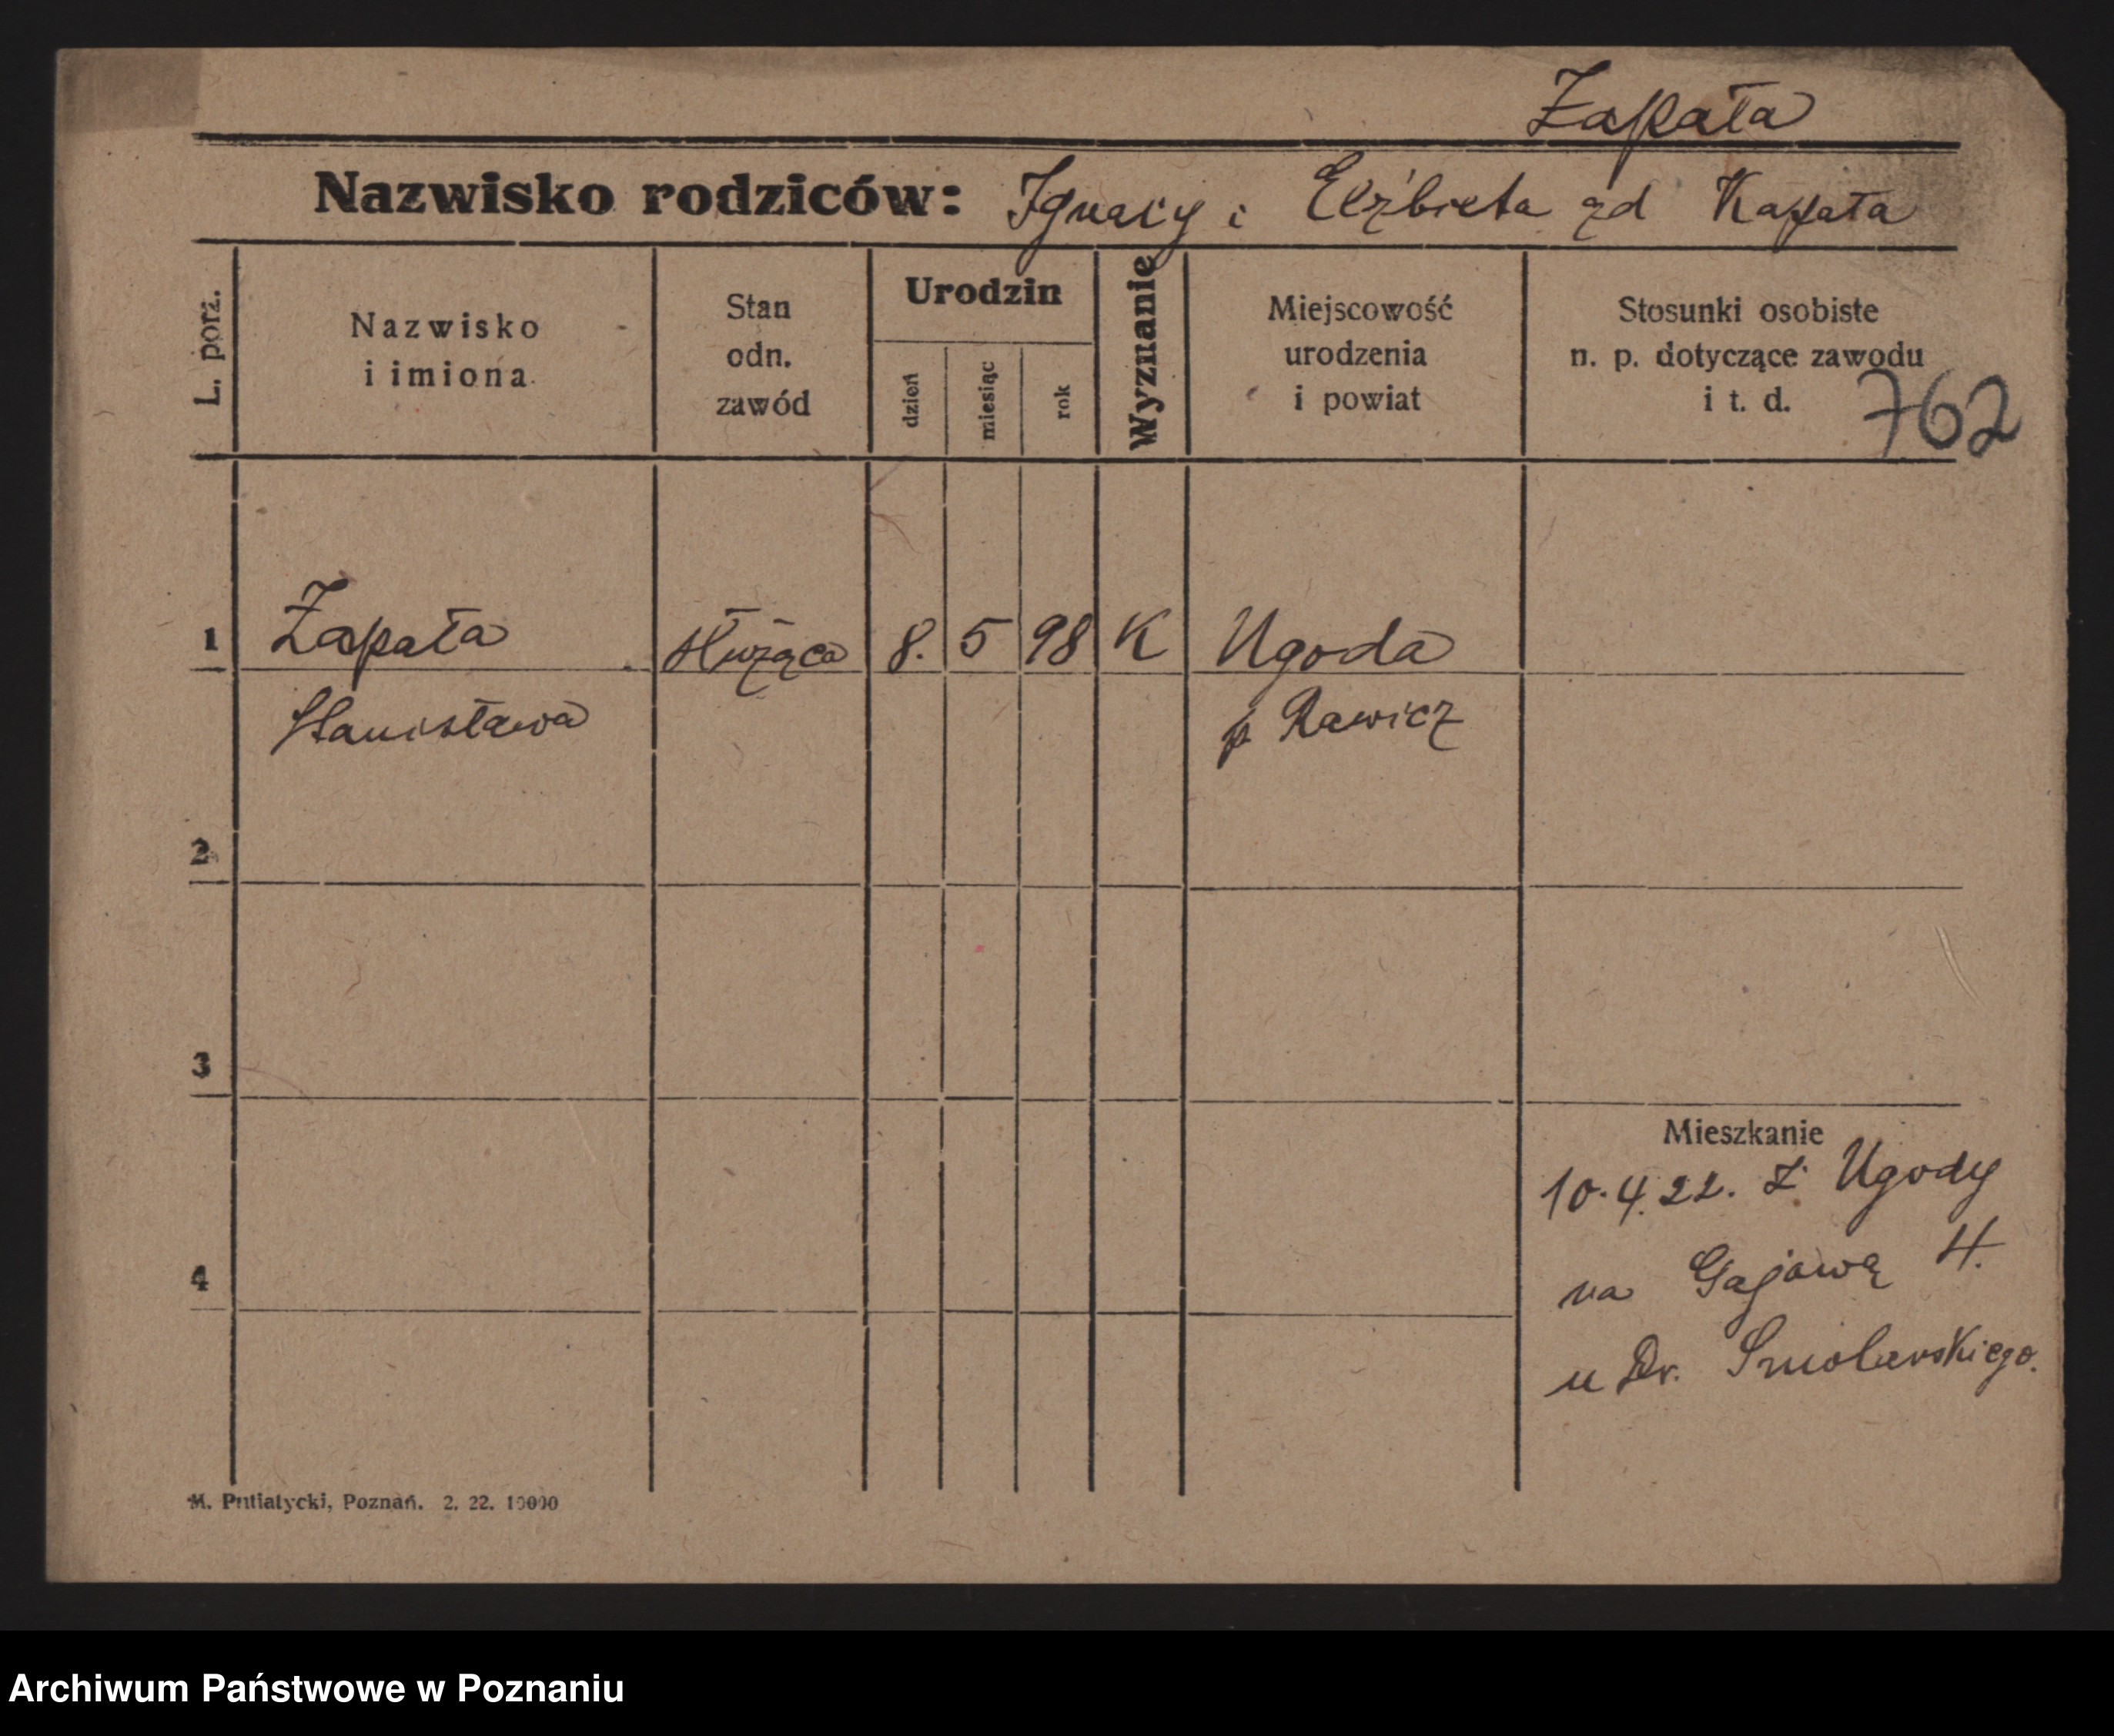 Zapała
Nazwisko rodziców: Ignacy i Elżbieta zd Kapała
L. porz.
Nazwisko
i imiona
Stan
odn.
zawód
Urodzin
dzień
miesiąc
rok
Wyznanie
Miejscowość
urodzenia
i powiat
Stosunki osobiste
n. p. dotyczące zawodu
i t. d.
762
1 Zapała służąca 8. 5 98 K Ugoda
Stanisława p Rawicz
2
3
Mieszkanie
10.4.22. z Ugody
na Gajową 4.
4
u Dr. Smolarskiego.
M. Putiatycki, Poznań. 2. 22. 10000
Archiwum Państwowe w Poznaniu